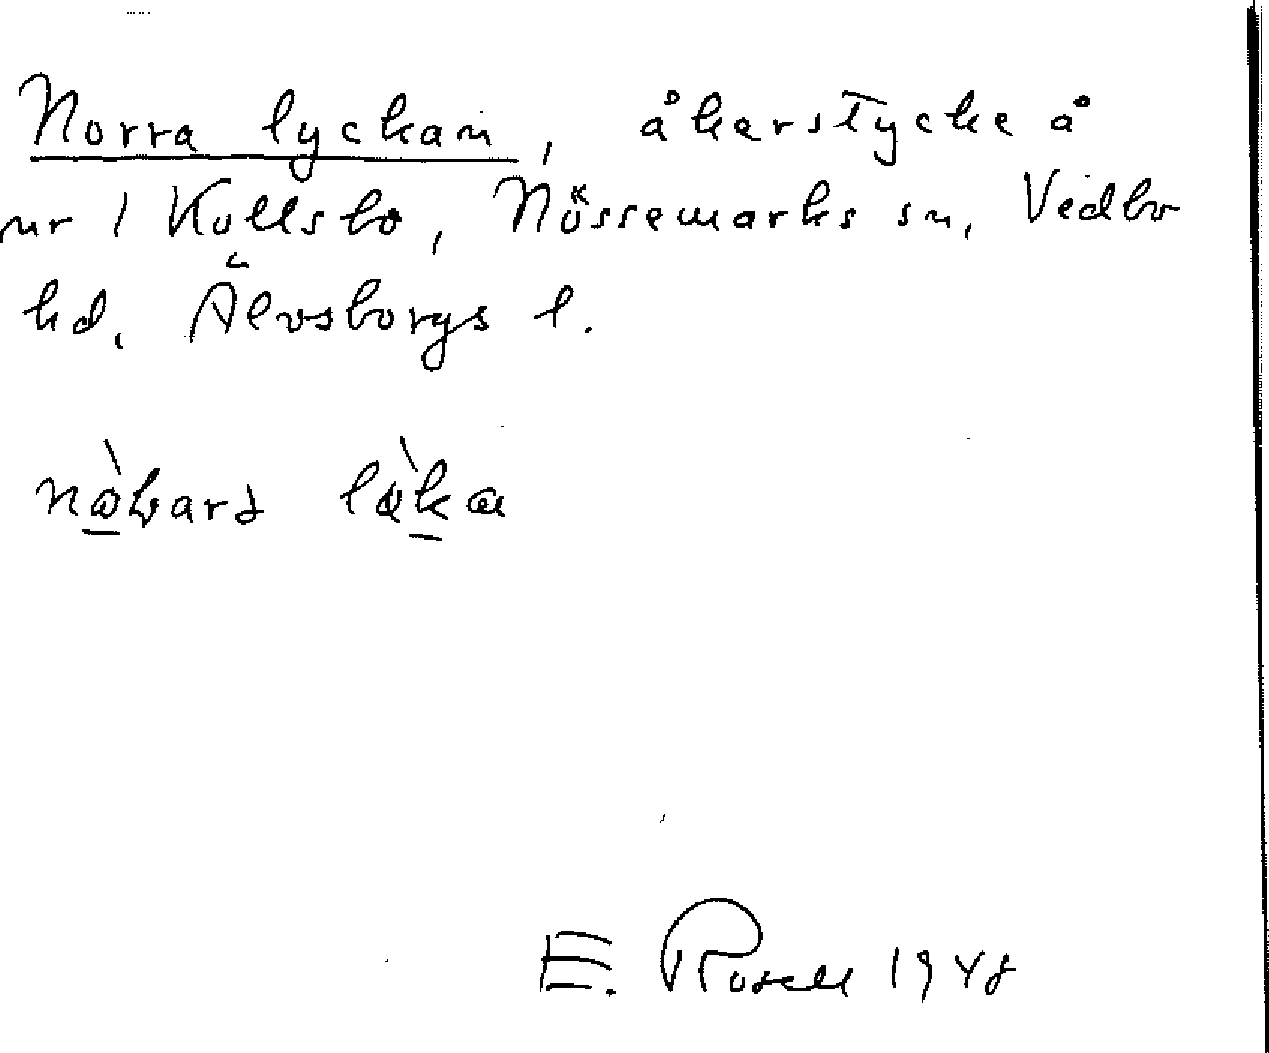 Norra lyckan, åkerstycke å
nr 1 Kullsbo, Nössemarks sn, Vedbo
hd, Älvsborgs l.
E. Rosell 1948